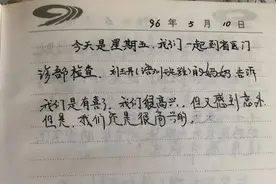 96年5月10日
今天是星期五,我们一起到省医门
诊部检查,刘玉升(语)的妈妈告诉
我们是有喜了,我们很高兴,但又感到意外
但是,我们还是很高兴的.